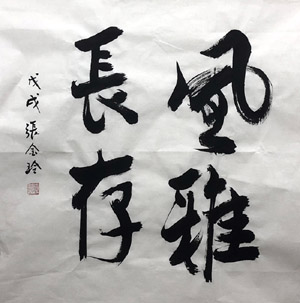 風雅
長存
戊戌張金玲